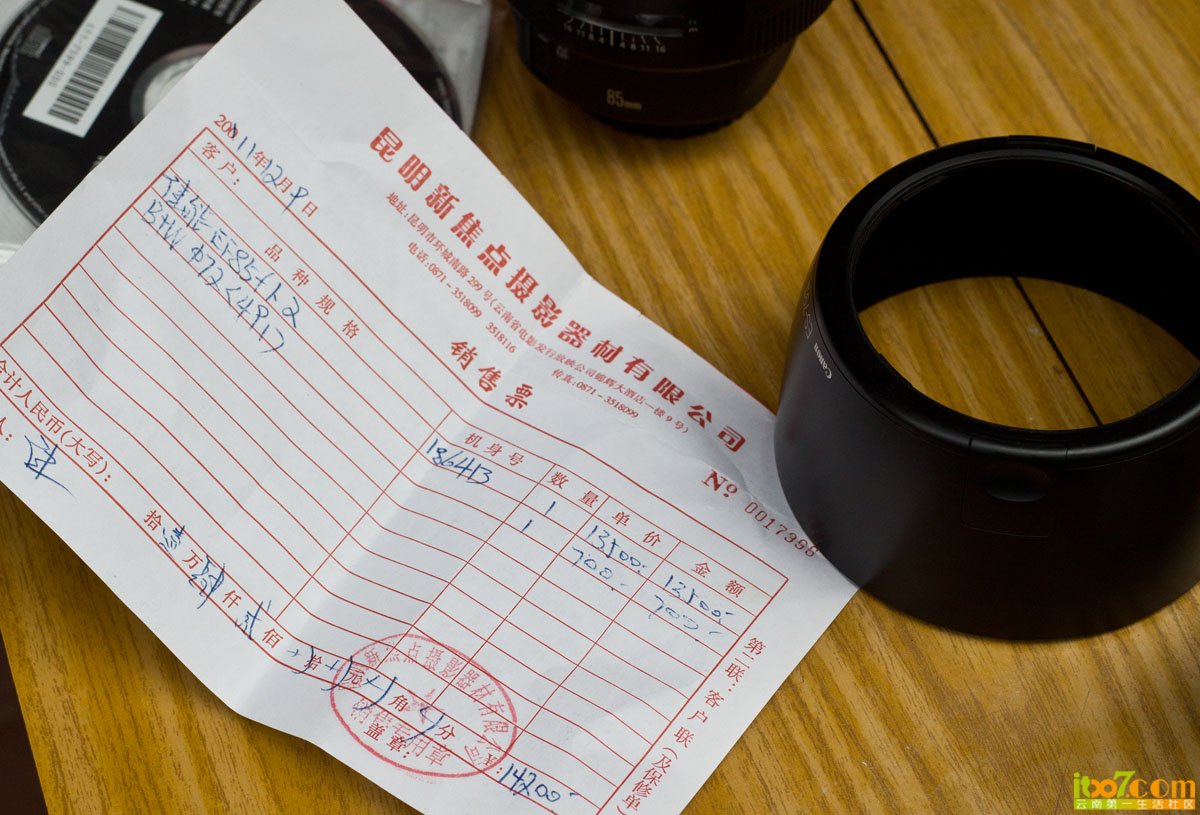 85mm
Canon
昆明新焦点摄影器材有限公司
地址:昆明市环城南路299号(云南省电影发行放映公司锦辉大酒店一楼9号)
电话:0871-3518099 3518116 传真:0871-3518099
销售票
№ 0017398
2011年12月9日
客户:
品种规格 机身号 数量 单价 金额
佳能 EF85f1.2 186413 1 13500. 13500.
B+W Φ72 1 700. 700.
合计人民币(大写): 拾壹万肆仟贰佰拾元角分
盖章:
14200.
第二联:客户联(及保修单)
点摄影器材有限公司
itbo7.com
云南第一生活社区